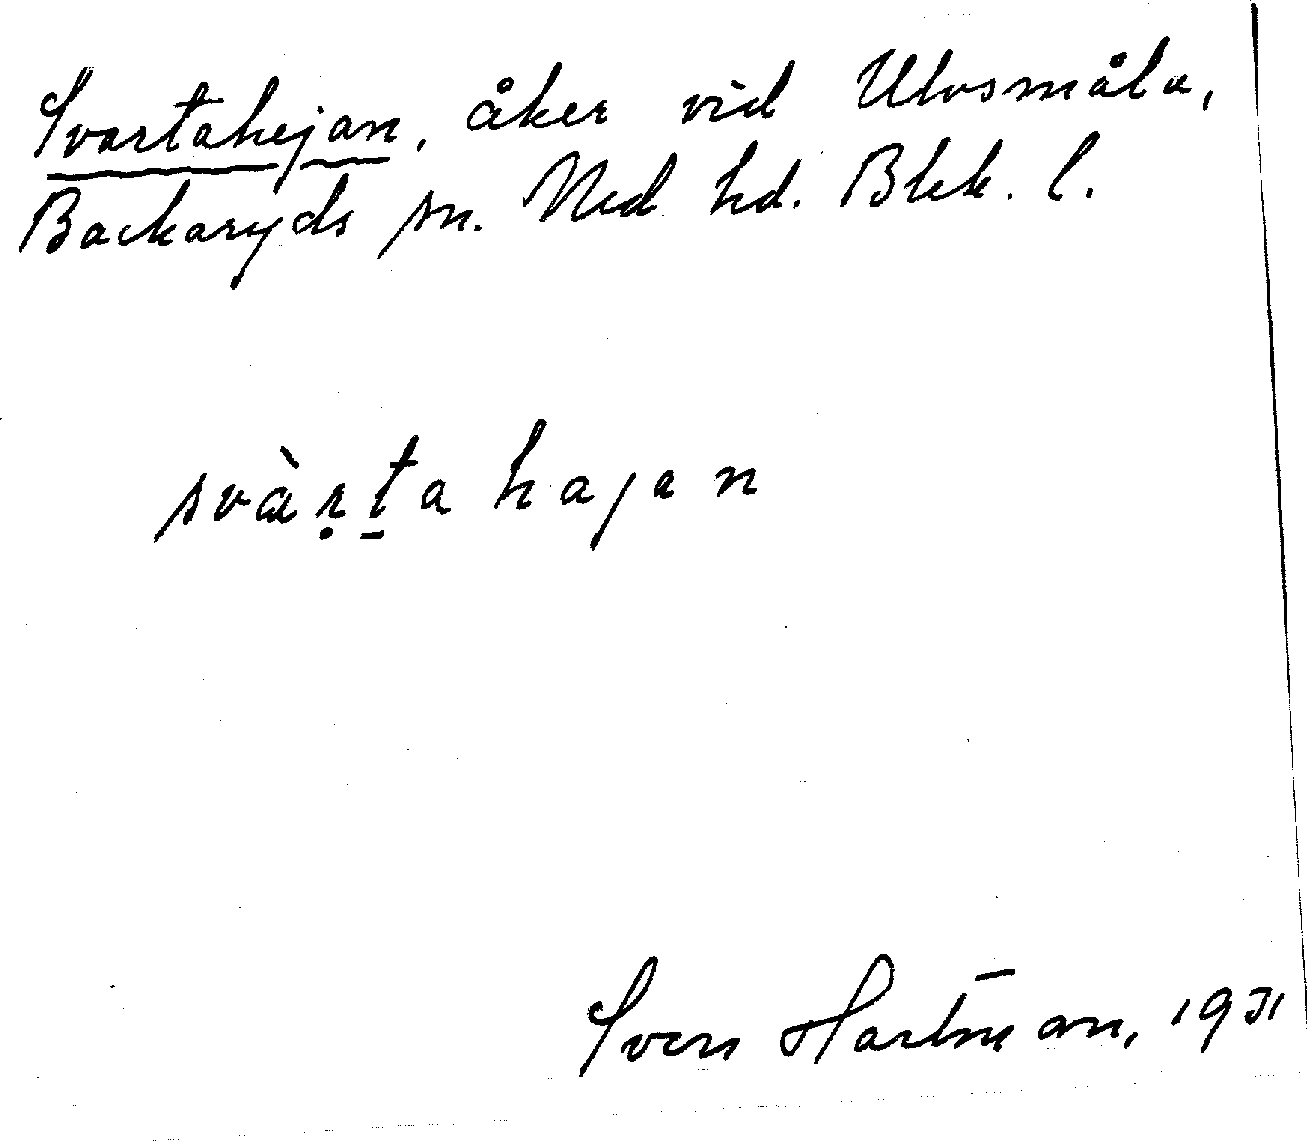 Svartahejan, åker vid Ulvsmåla,
Backaryds sn. Med hd. Blek. l.
svàṛṯa hajan
Sven Hartman, 1931